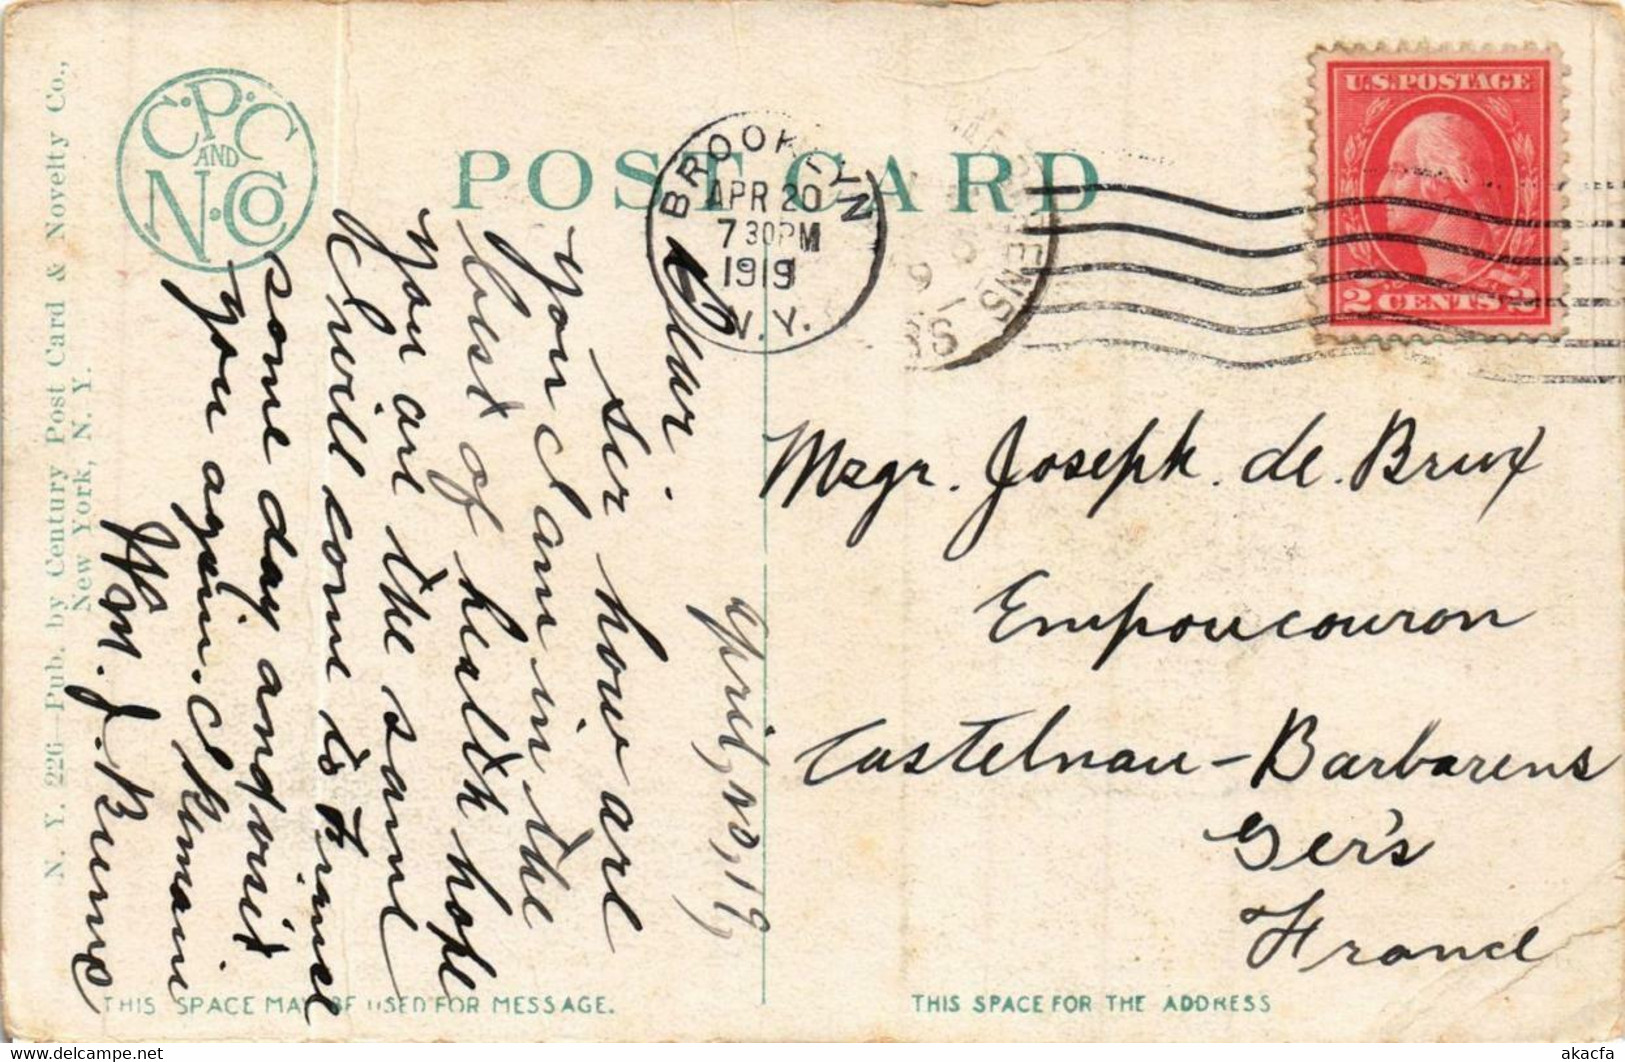 N. Y. 226—Pub. by Century Post Card & Novelty Co.,
New York, N. Y.
C.P.C
AND
N.Co
POST CARD
BROOKLYN
APR 20
7 30 PM
1919
N.Y.
U.S. POSTAGE
2 CENTS 2
April, 20, 19,
sir how are
you I am in the
best of health hope
you are the same
I will come to France
some day and visit
you again. I Remain
Wm. J. Burns
Mzgr. Joseph. de. Brux
Empoucouron
Castelnau-Barbarens
Ger's
France
THIS SPACE MAY BE USED FOR MESSAGE.
THIS SPACE FOR THE ADDRESS
akacfa
www.delcampe.net